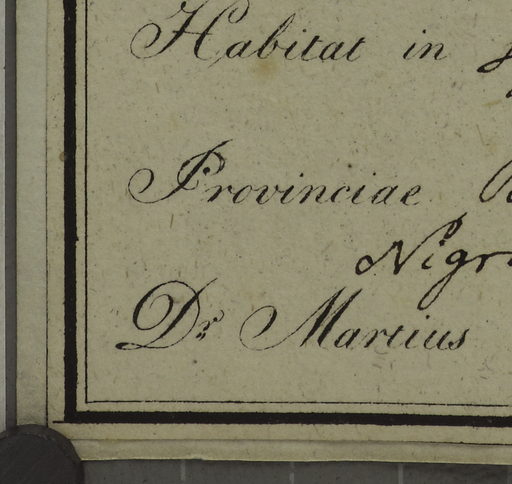 Habitat in
Provinciae
Nigr
Dr Martius